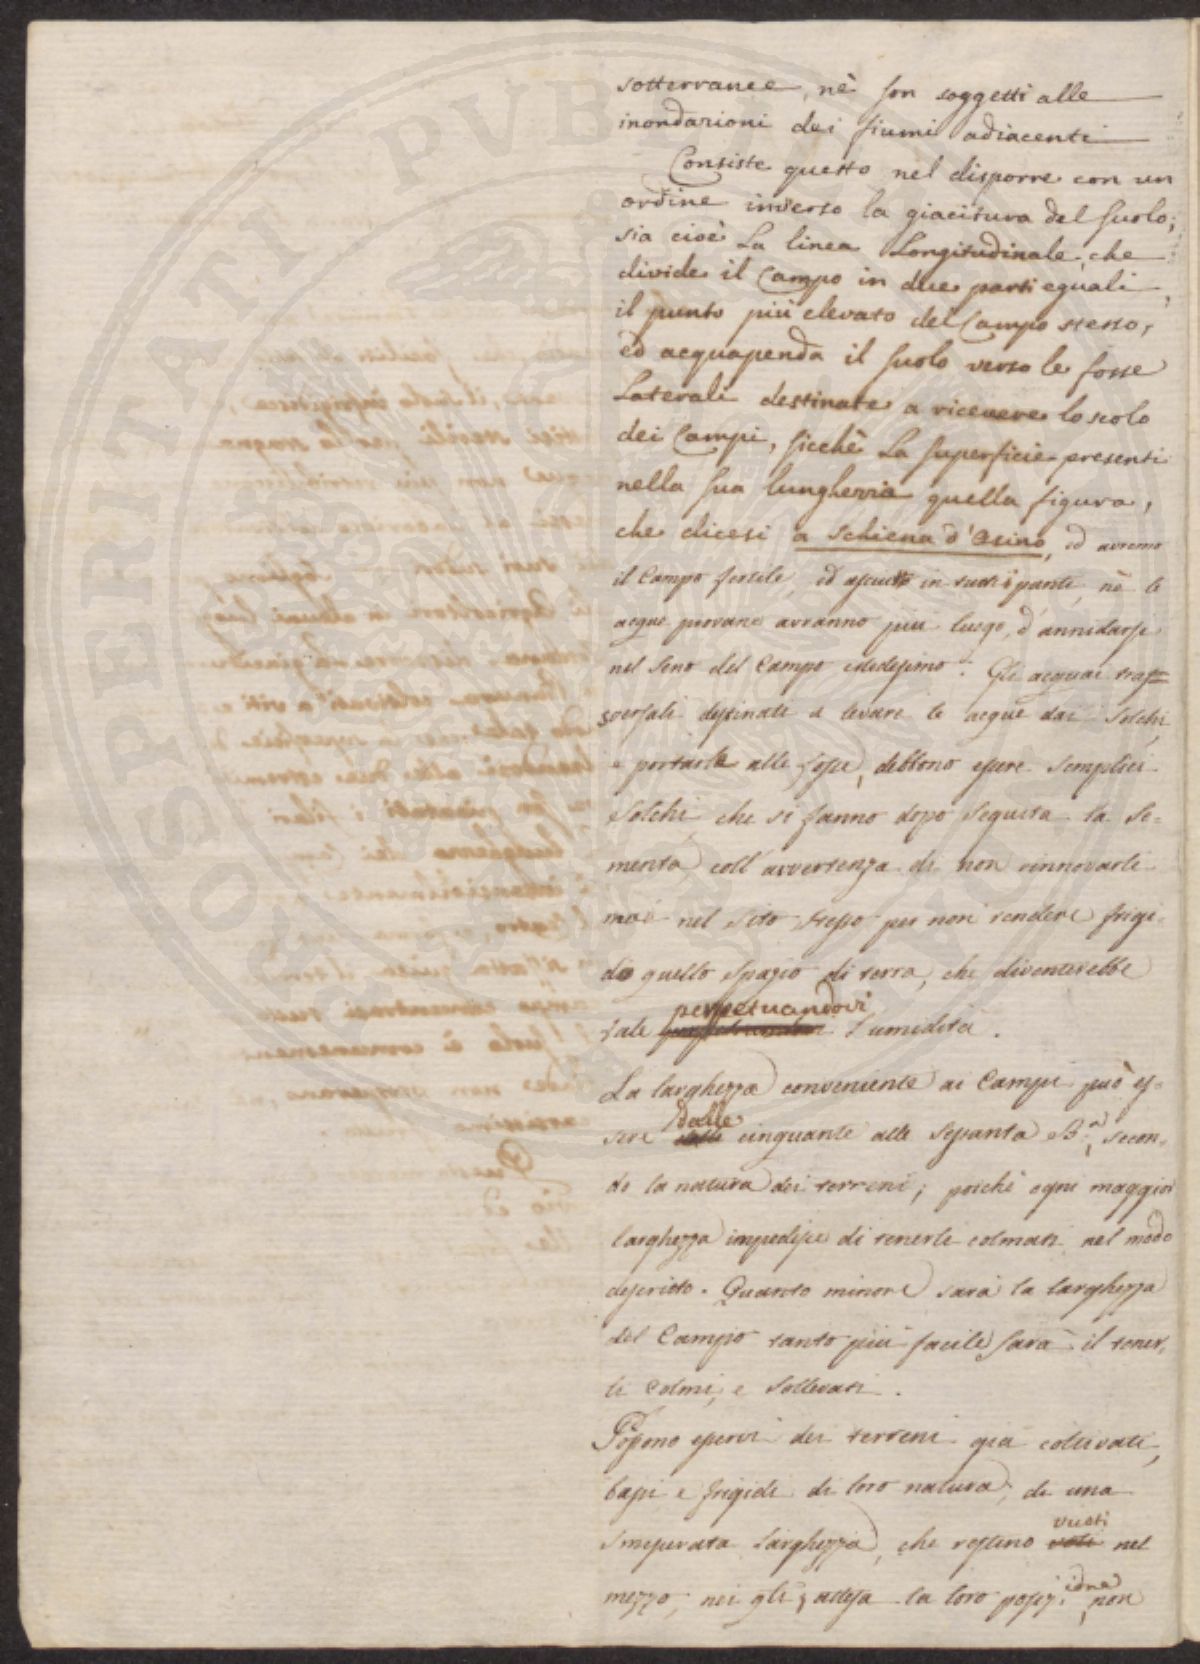 sotterranee, nè son soggetti alle
inondazioni dei fiumi adiacenti
Consiste questo nel disporre con un
ordine inverso la giacitura del suolo;
sia cioè La linea Longitudinale, che
divide il Campo in due parti eguali,
il punto più elevato del Campo stesso,
ed acquapenda il suolo verso le fosse
Laterali destinate a ricevere lo scolo
dei Campi, sicchè La superficie presenti
nella sua lunghezza quella figura,
che dicesi a schiena d'Asino, ed avremo
il Campo fertile, ed asciutto in tutti i punti, nè le
acque piovane avranno più luogo d'annidarsi
nel seno del Campo medesimo. Gli acquai tras=
versali destinati a levare le acque dai solchi,
e portarle alle fosse, debbono essere semplici
solchi, che si fanno dopo seguita la se=
menta, coll'avvertenza di non rinnovarli
mai nel sito stesso per non rendere frigi=
do quello spazio di terra, che diventerebbe
perpetuandovi
tale l'umidità.
La larghezza conveniente ai Campi può es=
dalle
sere cinquante alle sessanta B.a secon=
do la natura dei terreni; poichè ogni maggior
larghezza impedisce di tenerli colmati nel modo
descritto. Quanto minore sarà la larghezza
del Campo tanto più facile sarà il tener=
li colmi, e sollevati.
Possono esservi dei terreni già coltivati,
bassi e frigidi di loro natura, di una
vuoti
smisurata larghezza, che restino voti nel
mezzo, nei gli, attesa la loro posizione non